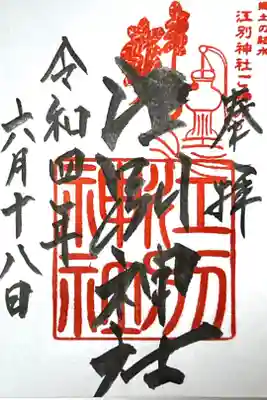 郷土の銘水
江別神社
奉拝
江別神社
江別神社
令和四年
六月十八日